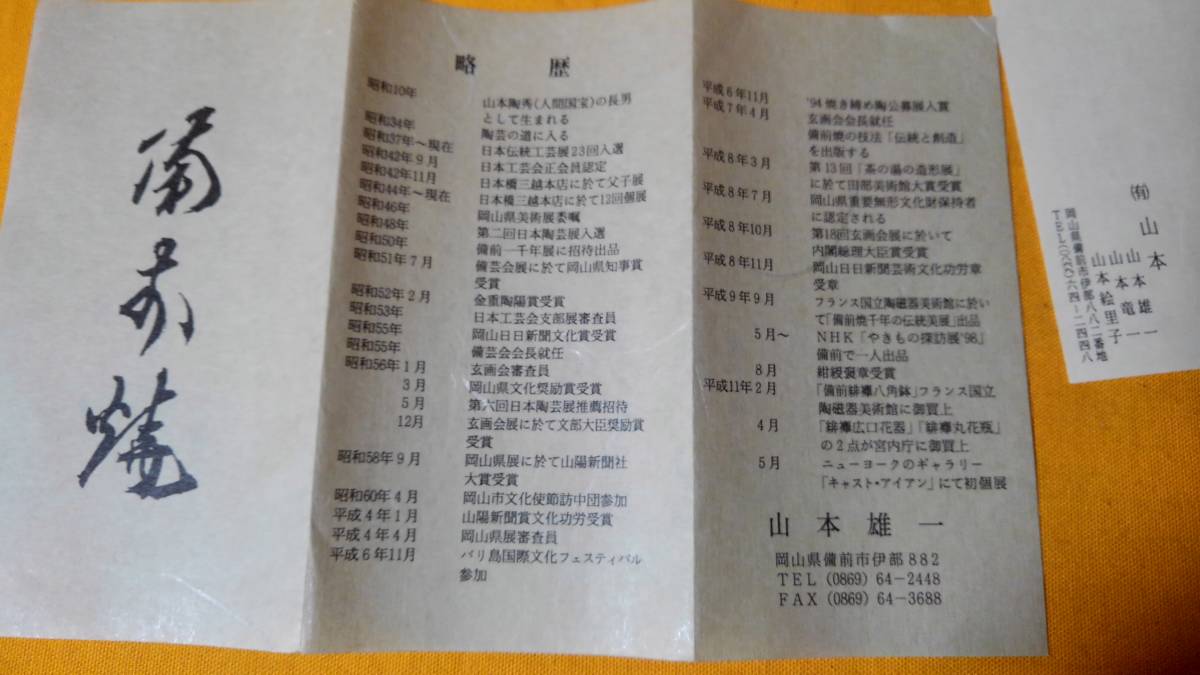 備前焼
略歴
昭和10年 山本陶秀(人間国宝)の長男
として生まれる
昭和34年 陶芸の道に入る
昭和37年〜現在 日本伝統工芸展23回入選
昭和42年9月 日本工芸会正会員認定
昭和42年11月 日本橋三越本店に於て父子展
昭和44年〜現在 日本橋三越本店に於て12回個展
昭和46年 岡山県美術展委嘱
昭和48年 第二回日本陶芸展入選
昭和50年 備前一千年展に招待出品
昭和51年7月 備芸会展に於て岡山県知事賞
受賞
昭和52年2月 金重陶陽賞受賞
昭和53年 日本工芸会支部展審査員
昭和55年 岡山日日新聞文化賞受賞
昭和55年 備芸会会長就任
昭和56年1月 玄画会審査員
3月 岡山県文化奨励賞受賞
5月 第六回日本陶芸展推薦招待
12月 玄画会展に於て文部大臣奨励賞
受賞
昭和58年9月 岡山県展に於て山陽新聞社
大賞受賞
昭和60年4月 岡山市文化使節訪中団参加
平成4年1月 山陽新聞賞文化功労受賞
平成4年4月 岡山県展審査員
平成6年11月 バリ島国際文化フェスティバル
参加
平成6年11月 '94焼き締め陶公募展入賞
平成7年4月 玄画会会長就任
備前焼の技法「伝統と創造」
を出版する
平成8年3月 第13回「茶の湯の造形展」
に於て田部美術館大賞受賞
平成8年7月 岡山県重要無形文化財保持者
に認定される
平成8年10月 第18回玄画会展に於いて
内閣総理大臣賞受賞
平成8年11月 岡山日日新聞芸術文化功労章
受章
平成9年9月 フランス国立陶磁器美術館に於い
て「備前焼千年の伝統美展」出品
5月〜 NHK「やきもの探訪展'98」
備前で一人出品
8月 紺綬褒章受章
平成11年2月 「備前緋襷八角鉢」フランス国立
陶磁器美術館に御買上
4月 「緋襷広口花器」「緋襷丸花瓶」
の2点が宮内庁に御買上
5月 ニューヨークのギャラリー
「キャスト・アイアン」にて初個展
山本雄一
岡山県備前市伊部882
TEL (0869) 64-2448
FAX (0869) 64-3688
(有)山本
山本雄一
山本竜一
山本絵里子
岡山県備前市伊部八八二番地
TEL(〇八六九)六四-二四四八